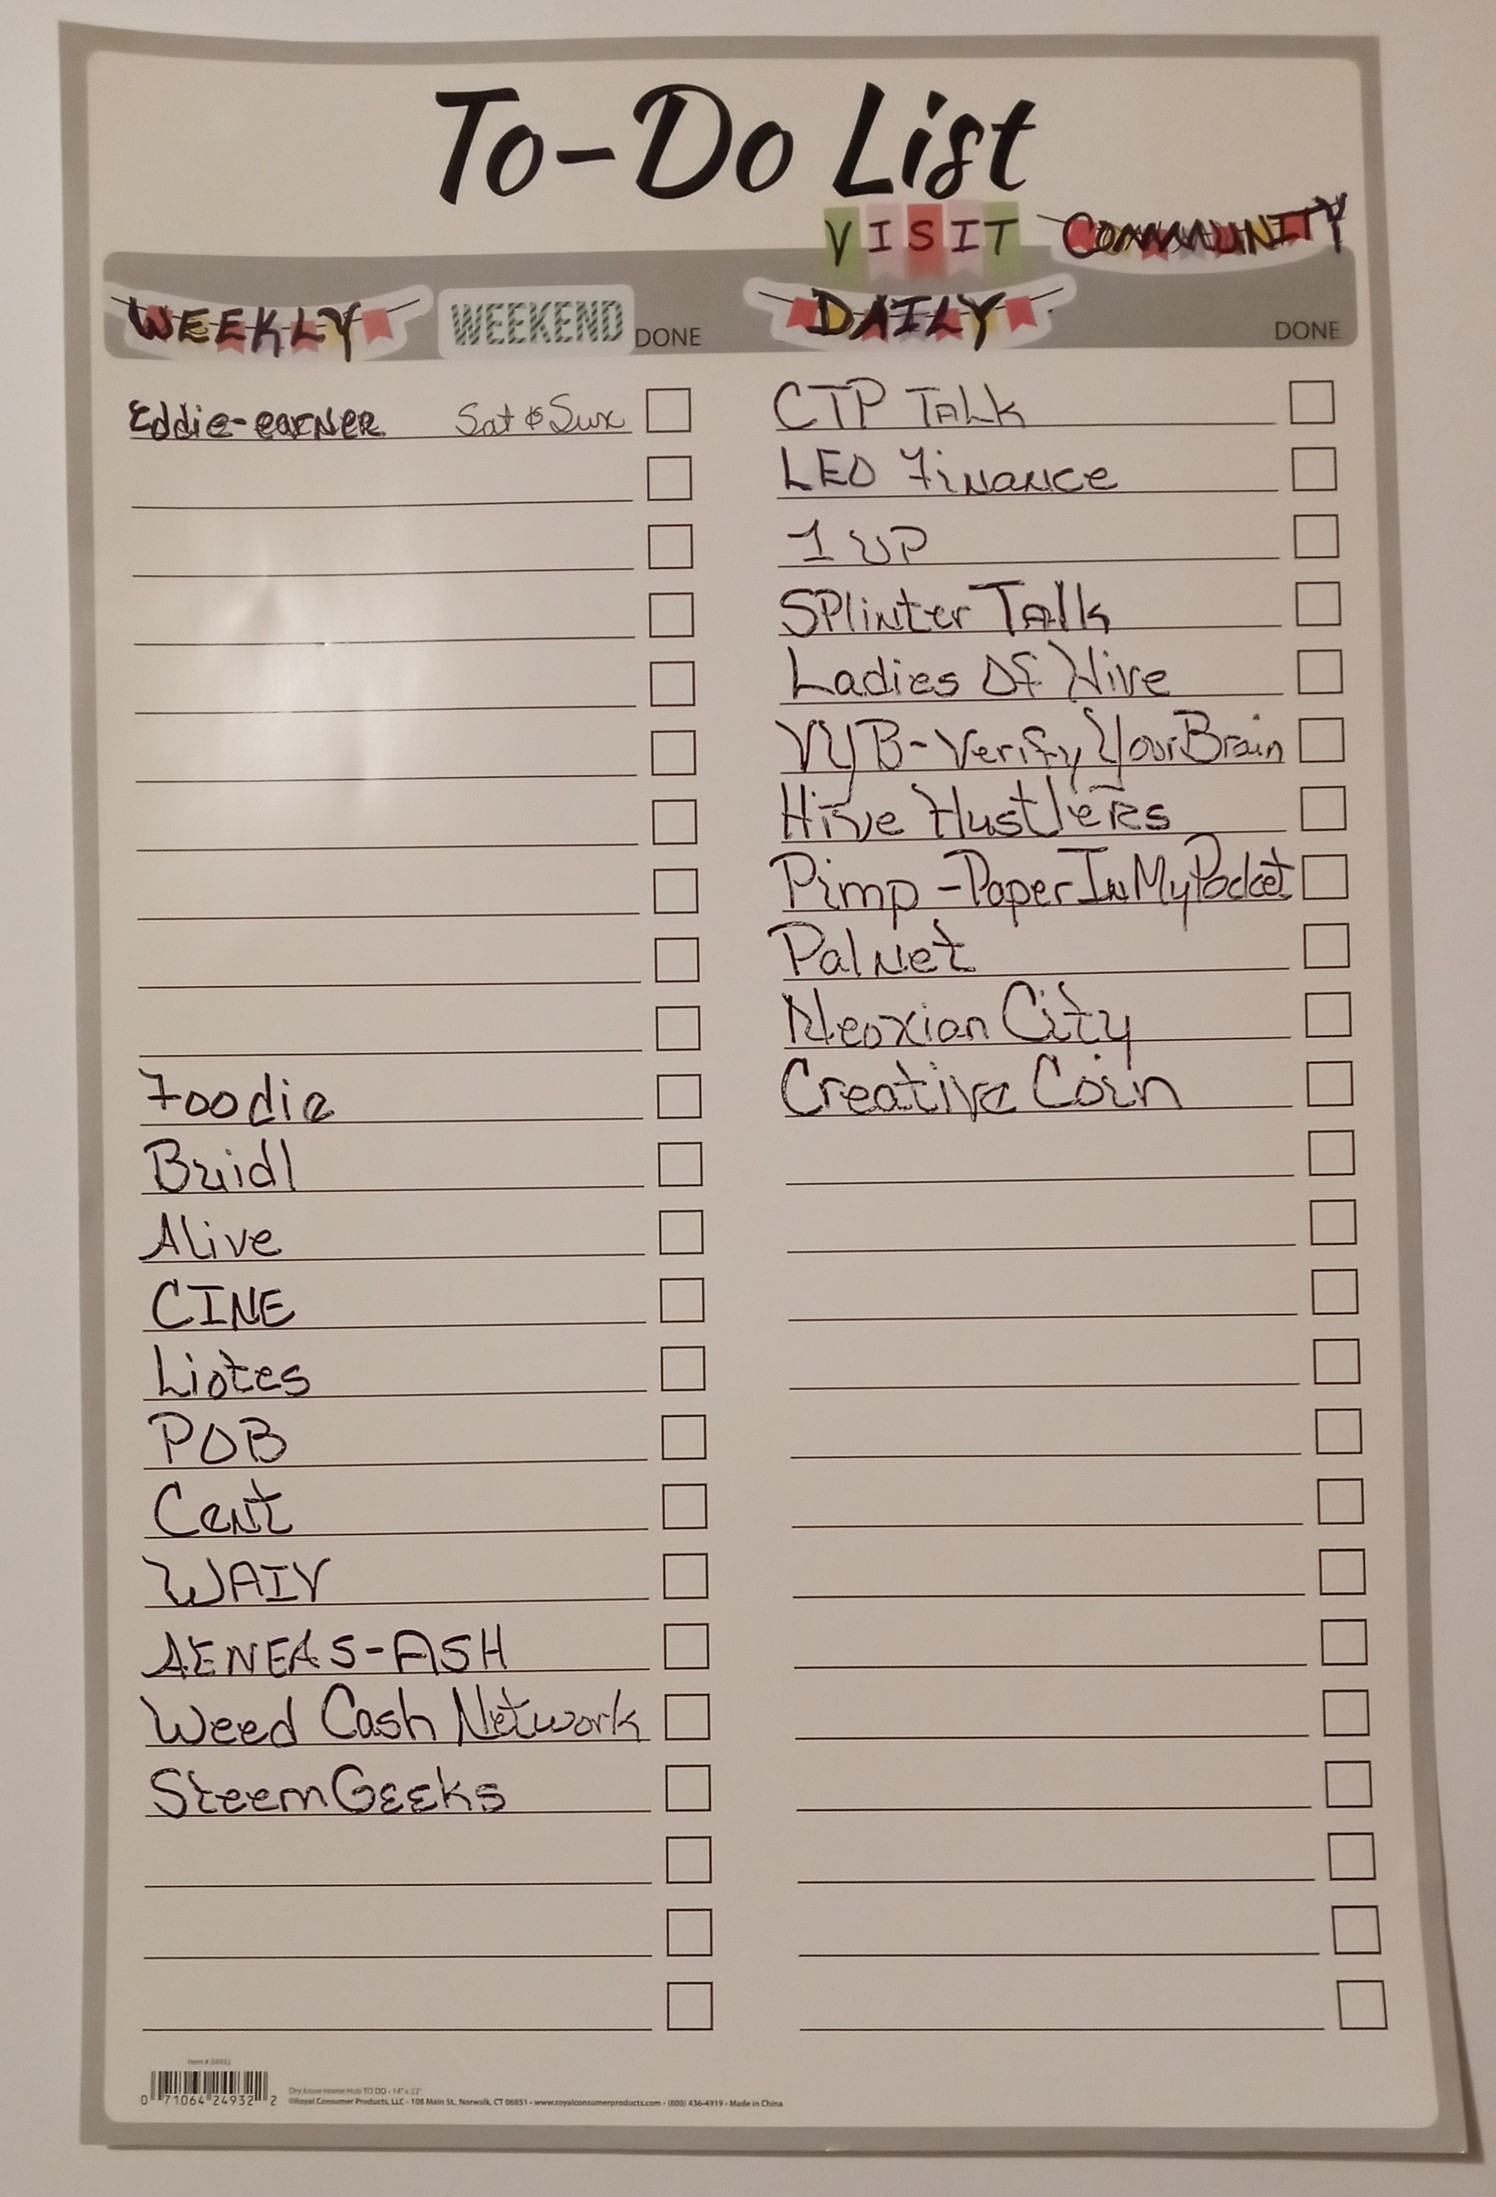 To-Do List
VISIT COMMUNITY
WEEKLY WEEKEND DONE
Eddie-earner Sat & Sun
Foodie
Build
Alive
CINE
Liotes
POB
Cent
WAIV
AENEAS-ASH
Weed Cash Network
SteemGeeks
DAILY DONE
CTP Talk
LEO Finance
1 UP
Splinter Talk
Ladies Of Hive
VYB-Verify Your Brain
Hive Hustlers
Pimp-PaperInMyPocket
Palnet
Neoxian City
Creative Coin
Item # 24932
0 71064 24932 2
Dry Erase Home Hub TO DO - 14" x 22"
©Royal Consumer Products, LLC - 108 Main St., Norwalk, CT 06851 - www.royalconsumerproducts.com - (800) 436-4919 - Made in China